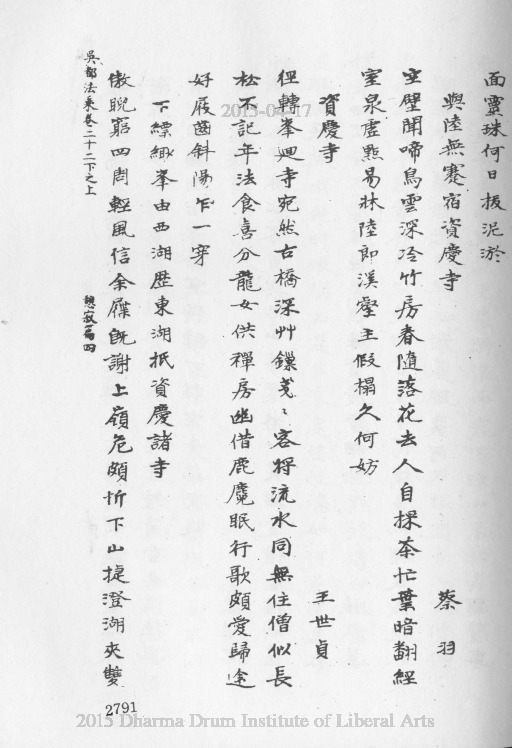 面靈珠何日拔泥淤
與陸無蹇宿資慶寺
蔡羽
空壁聞啼鳥雲深冷竹房春隨落花去人自採茶忙葉暗翻經
室泉虛點易牀陸郎溪壑主假榻久何妨
資慶寺
王世貞
徑轉峯迴寺宛然古橋深艸鎖芊芊客將流水同無住僧似長
松不記年法食喜分龍女供禪房幽借鹿麑眠行歌頗愛歸途
好屐齒斜陽乍一穿
下縹緲峯由西湖歷東湖抵資慶諸寺
傲睨窮四周輕風信余屧旣謝上嶺危頗忻下山捷澄湖夾雙
吳都法乘卷二十二下之上
憩寂篇四
2791
2015-04-17
2015 Dharma Drum Institute of Liberal Arts